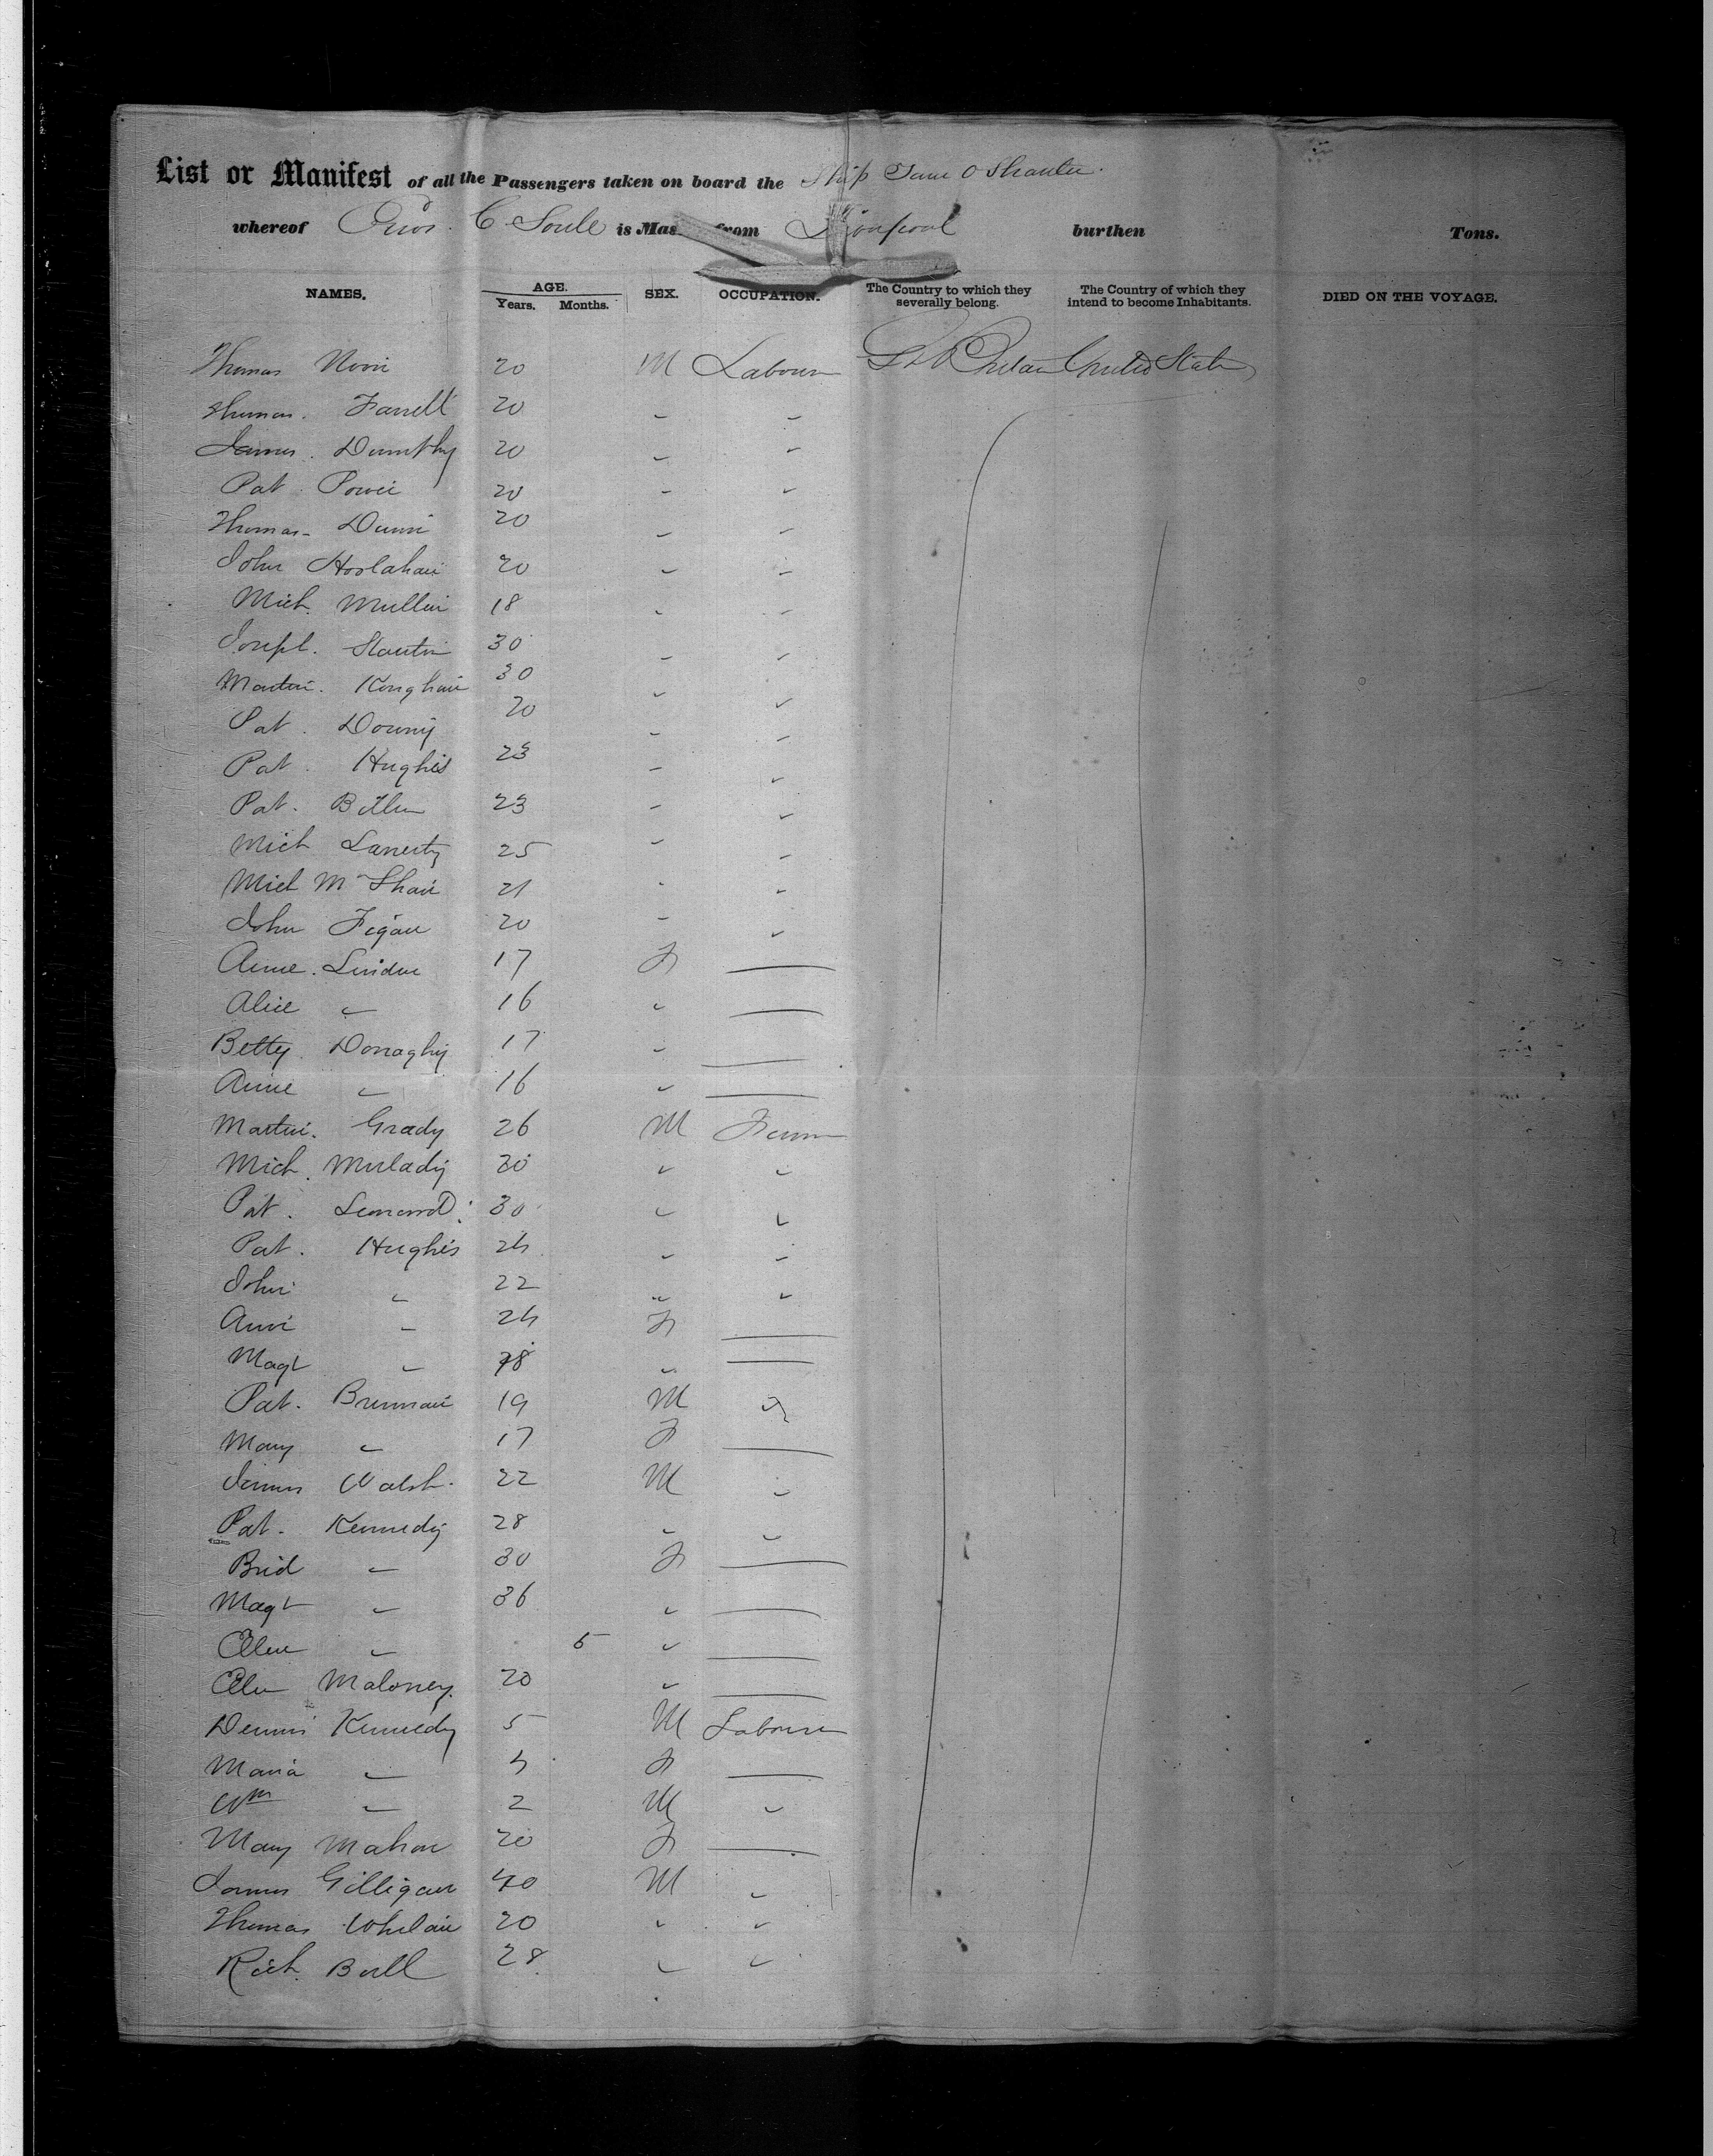 List or Manifest of all the Passengers taken on board the Ship Tam O Shanter.
whereof C. Soule is Mas from Liverpool burthen Tons.
NAMES. AGE. SEX. OCCUPATION. The Country to which they severally belong. The Country of which they intend to become Inhabitants. DIED ON THE VOYAGE.
Years. Months.
Thomas 20 M Labourer Gt Britain United States
Thomas. Farrell 20 " "
James. 20 " "
Pat. Power 20 " "
Thomas Dunn 20 " "
John Hoolahan 20 " "
Mich. Mullin 18 " "
Joseph. 30 " "
Martin. 30 " "
Pat. Downy 20 " "
Pat. Hughes 23 " "
Pat. 23 " "
Mich 25 " "
Mich 21 " "
John Fegan 20 " "
Anne. 17 F —
Alice " 16 " —
Betty. Donaghy 17 " —
Anne " 16 " —
Martin. Grady 26 M Farmer
Mich. Mulady 30 " "
Pat. Lenard 30 " "
Pat. Hughes 24 " "
John " 22 " "
Ann " 24 F —
Magt " 18 " —
Pat. Brennan 19 M "
Mary " 17 F —
James Walsh. 22 M "
Pat. Kennedy 28 " "
Brid " 30 F —
Magt " 36 " —
Ellen " 5 " —
Ellen Maloney. 20 " —
Dennis Kennedy 5 M Labourer
Maria " 4 F —
Wm " 2 M "
Mary Mahon 20 F —
James Gilligan 40 M "
Thomas Whelan 20 " "
Rich. Bull 28 " "